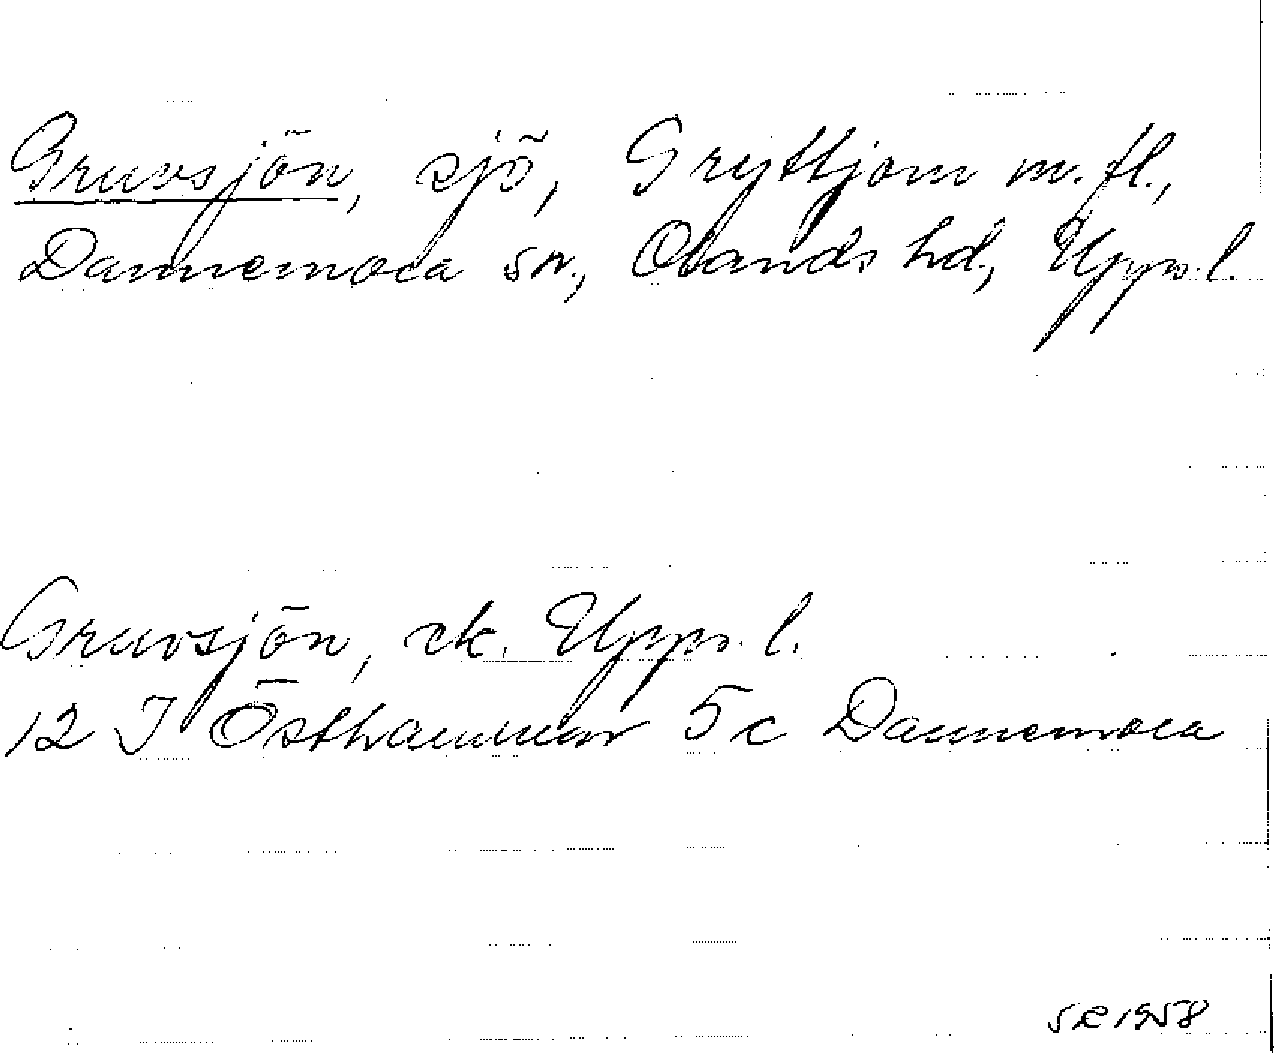 Gruvsjön, sjö, Gryttjom m. fl.,
Dannemora sn., Olands hd., Upps. l.
Gruvsjön, ek. Upps. l.
12 I Östhammar 5c Dannemora
SR 1958